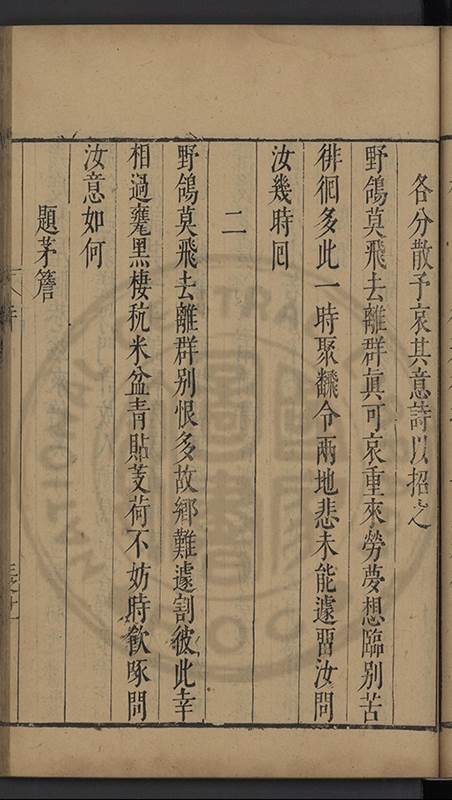 各分散予哀其意詩以招之
野鴿莫飛去離群眞可哀重來勞夢想臨别苦
徘徊多此一時聚飜令兩地悲未能遽畱汝問
汝幾時囘
二
野鴿莫飛去離群别恨多故鄉難遽割彼此幸
相過甕黒棲秔米盆青貼芰荷不妨時飮啄問
汝意如何
題茅簷